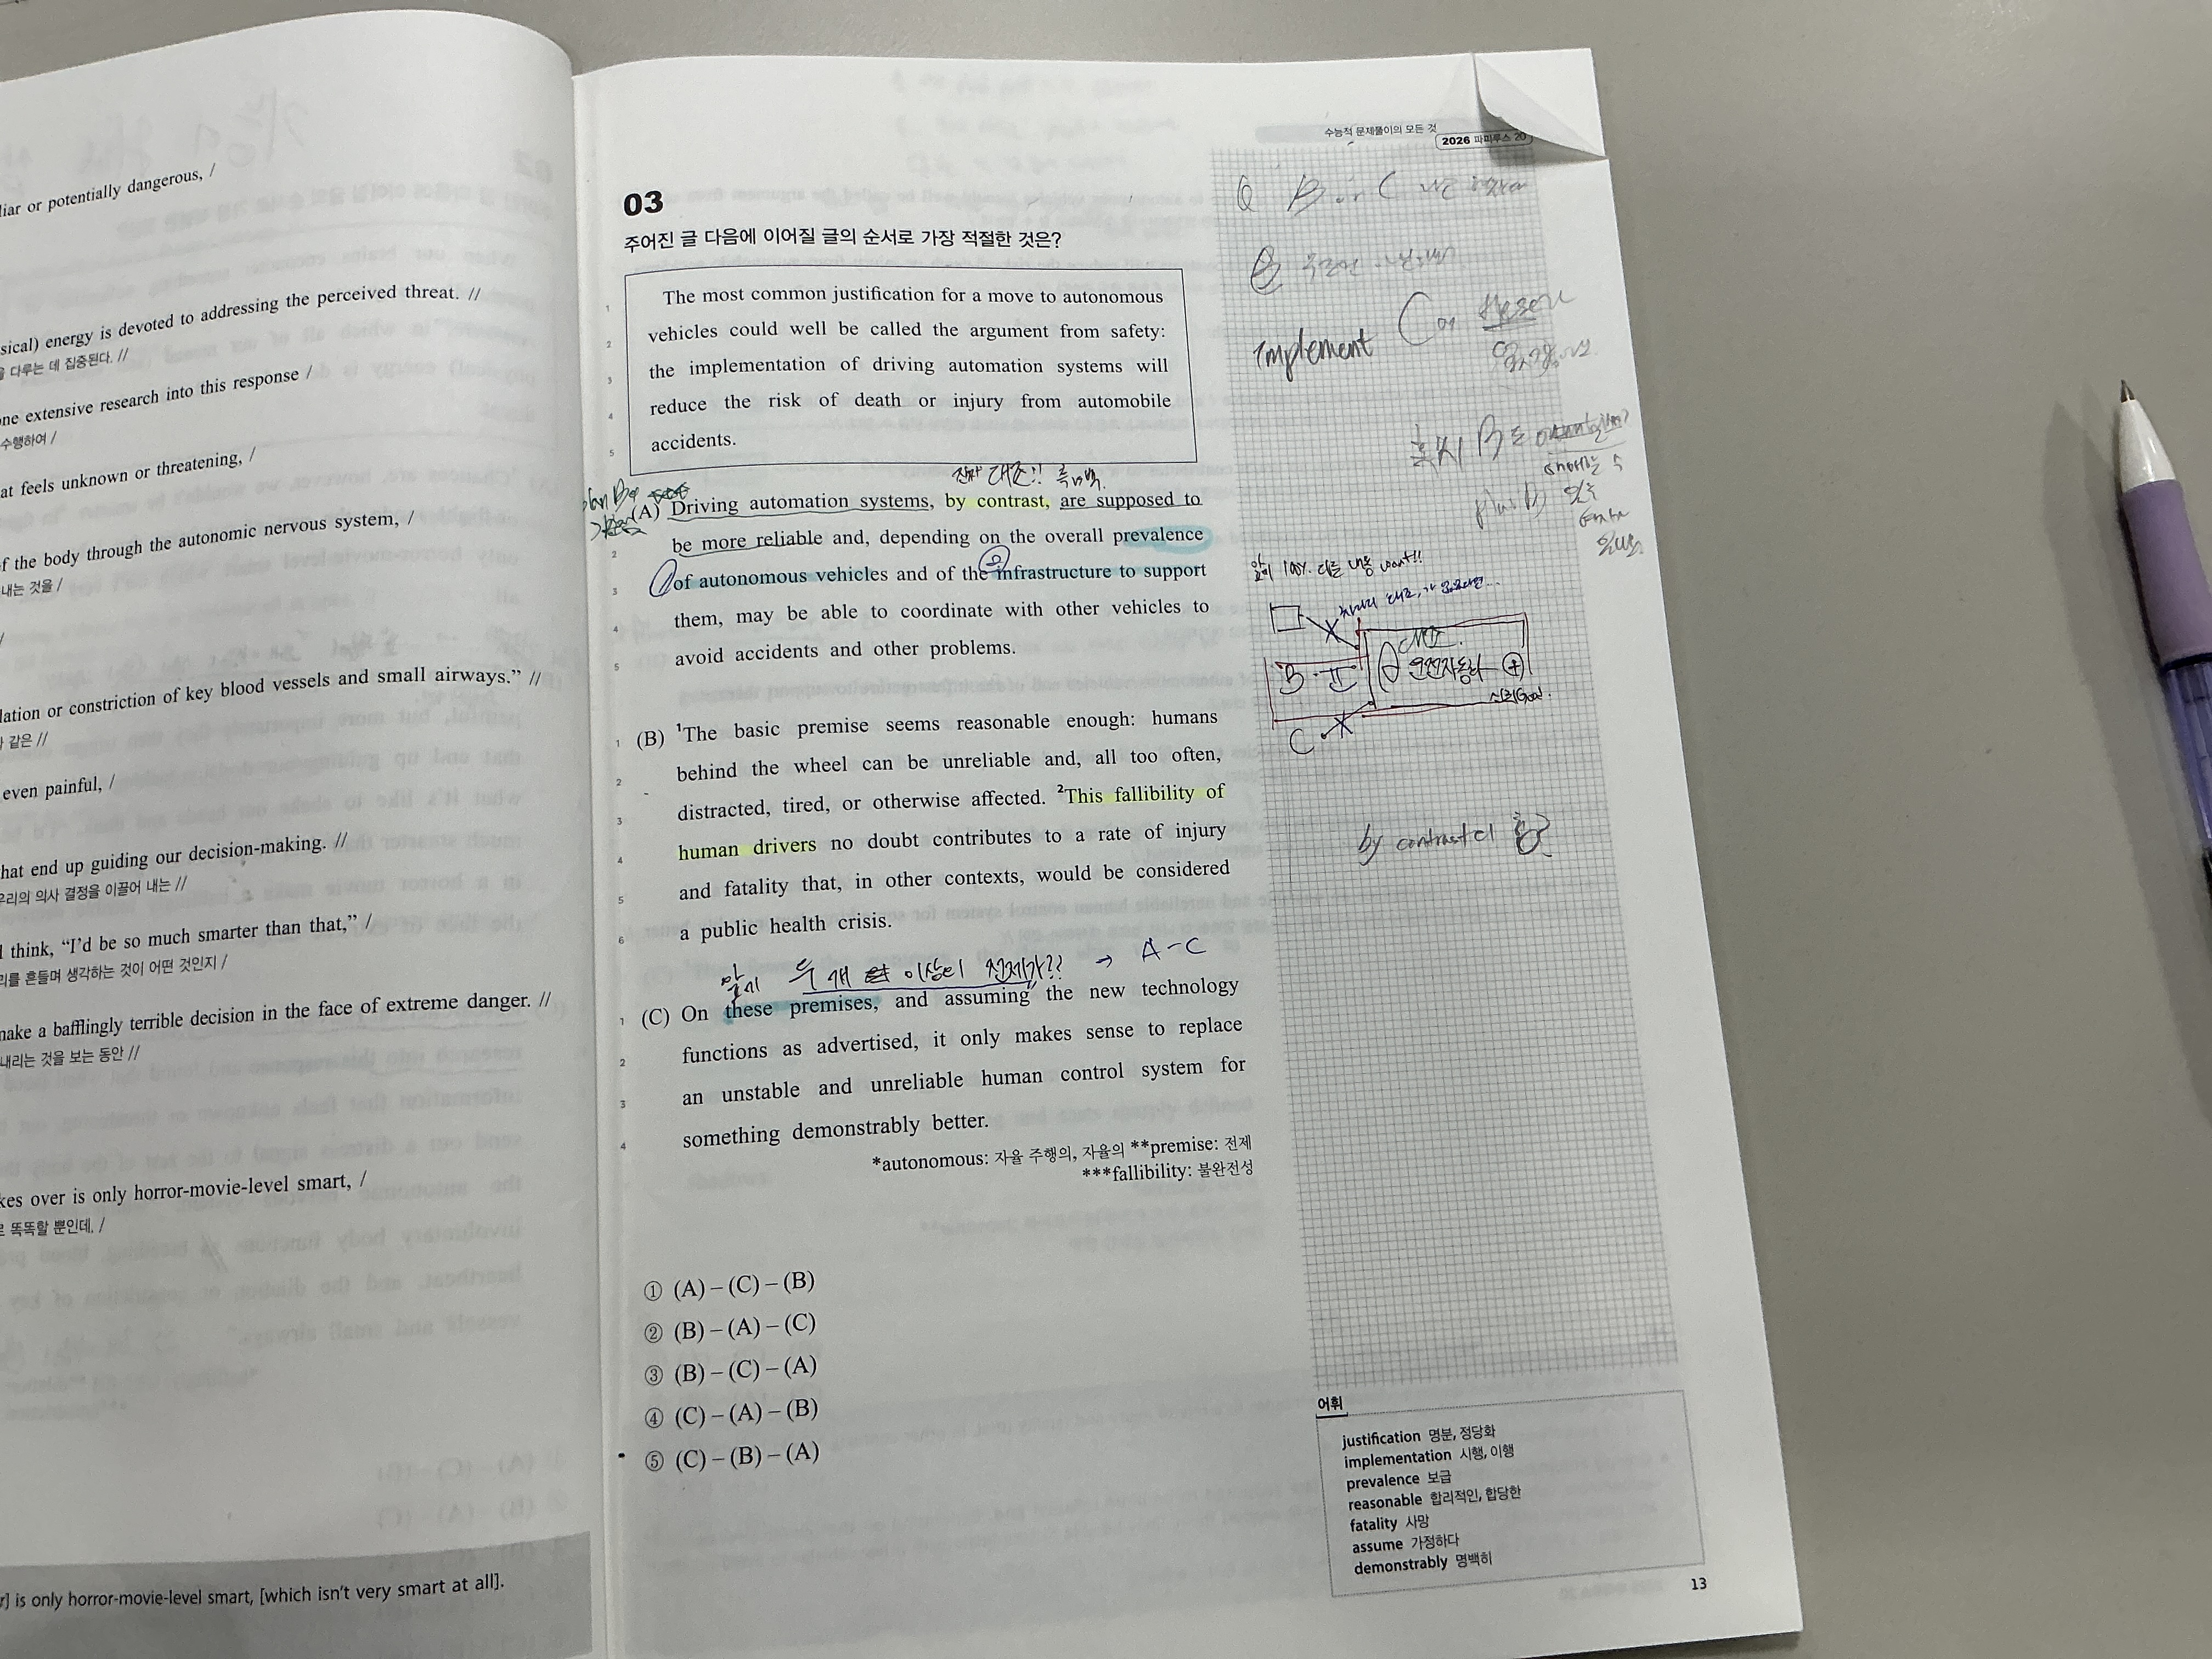 liar or potentially dangerous, /
sical) energy is devoted to addressing the perceived threat. //
다루는 데 집중된다. //
one extensive research into this response /
수행하여 /
at feels unknown or threatening, /
f the body through the autonomic nervous system, /
내는 것을 /
/
lation or constriction of key blood vessels and small airways.” //
같은 //
even painful, /
hat end up guiding our decision-making. //
우리의 의사 결정을 이끌어 내는 //
I think, “I’d be so much smarter than that,” /
리를 흔들며 생각하는 것이 어떤 것인지 /
make a bafflingly terrible decision in the face of extreme danger. //
내리는 것을 보는 동안 //
kes over is only horror-movie-level smart, /
로 똑똑할 뿐인데, /
r] is only horror-movie-level smart, [which isn’t very smart at all].
수능적 문제풀이의 모든 것
2026 파피루스 20
03
주어진 글 다음에 이어질 글의 순서로 가장 적절한 것은?
1 The most common justification for a move to autonomous
2 vehicles could well be called the argument from safety:
3 the implementation of driving automation systems will
4 reduce the risk of death or injury from automobile
5 accidents.
대조!!
(A) Driving automation systems, by contrast, are supposed to
2 be more reliable and, depending on the overall prevalence
3 of autonomous vehicles and of the infrastructure to support
4 them, may be able to coordinate with other vehicles to
5 avoid accidents and other problems.
1 (B) ¹The basic premise seems reasonable enough: humans
2 behind the wheel can be unreliable and, all too often,
3 distracted, tired, or otherwise affected. ²This fallibility of
4 human drivers no doubt contributes to a rate of injury
5 and fatality that, in other contexts, would be considered
6 a public health crisis.
앞에 두 개 이상의 전제가?? → A-C
1 (C) On these premises, and assuming the new technology
2 functions as advertised, it only makes sense to replace
3 an unstable and unreliable human control system for
4 something demonstrably better.
*autonomous: 자율 주행의, 자율의 **premise: 전제
***fallibility: 불완전성
① (A) – (C) – (B)
② (B) – (A) – (C)
③ (B) – (C) – (A)
④ (C) – (A) – (B)
⑤ (C) – (B) – (A)
Implement
these
혹시 B
앞이 100% 다른 내용 want!!
B
C
by contrast
어휘
justification 명분, 정당화
implementation 시행, 이행
prevalence 보급
reasonable 합리적인, 합당한
fatality 사망
assume 가정하다
demonstrably 명백히
13